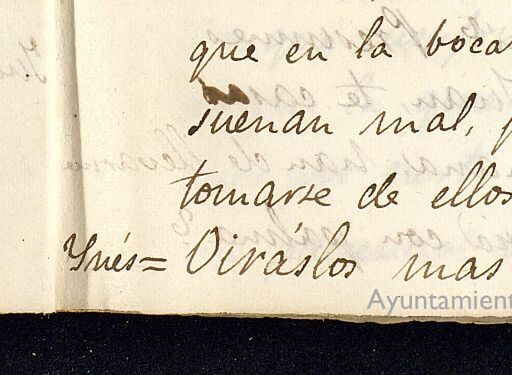 que en la boca
suenan mal,
tomarse de ellos
Ynés = Oiráslos mas
Ayuntamient